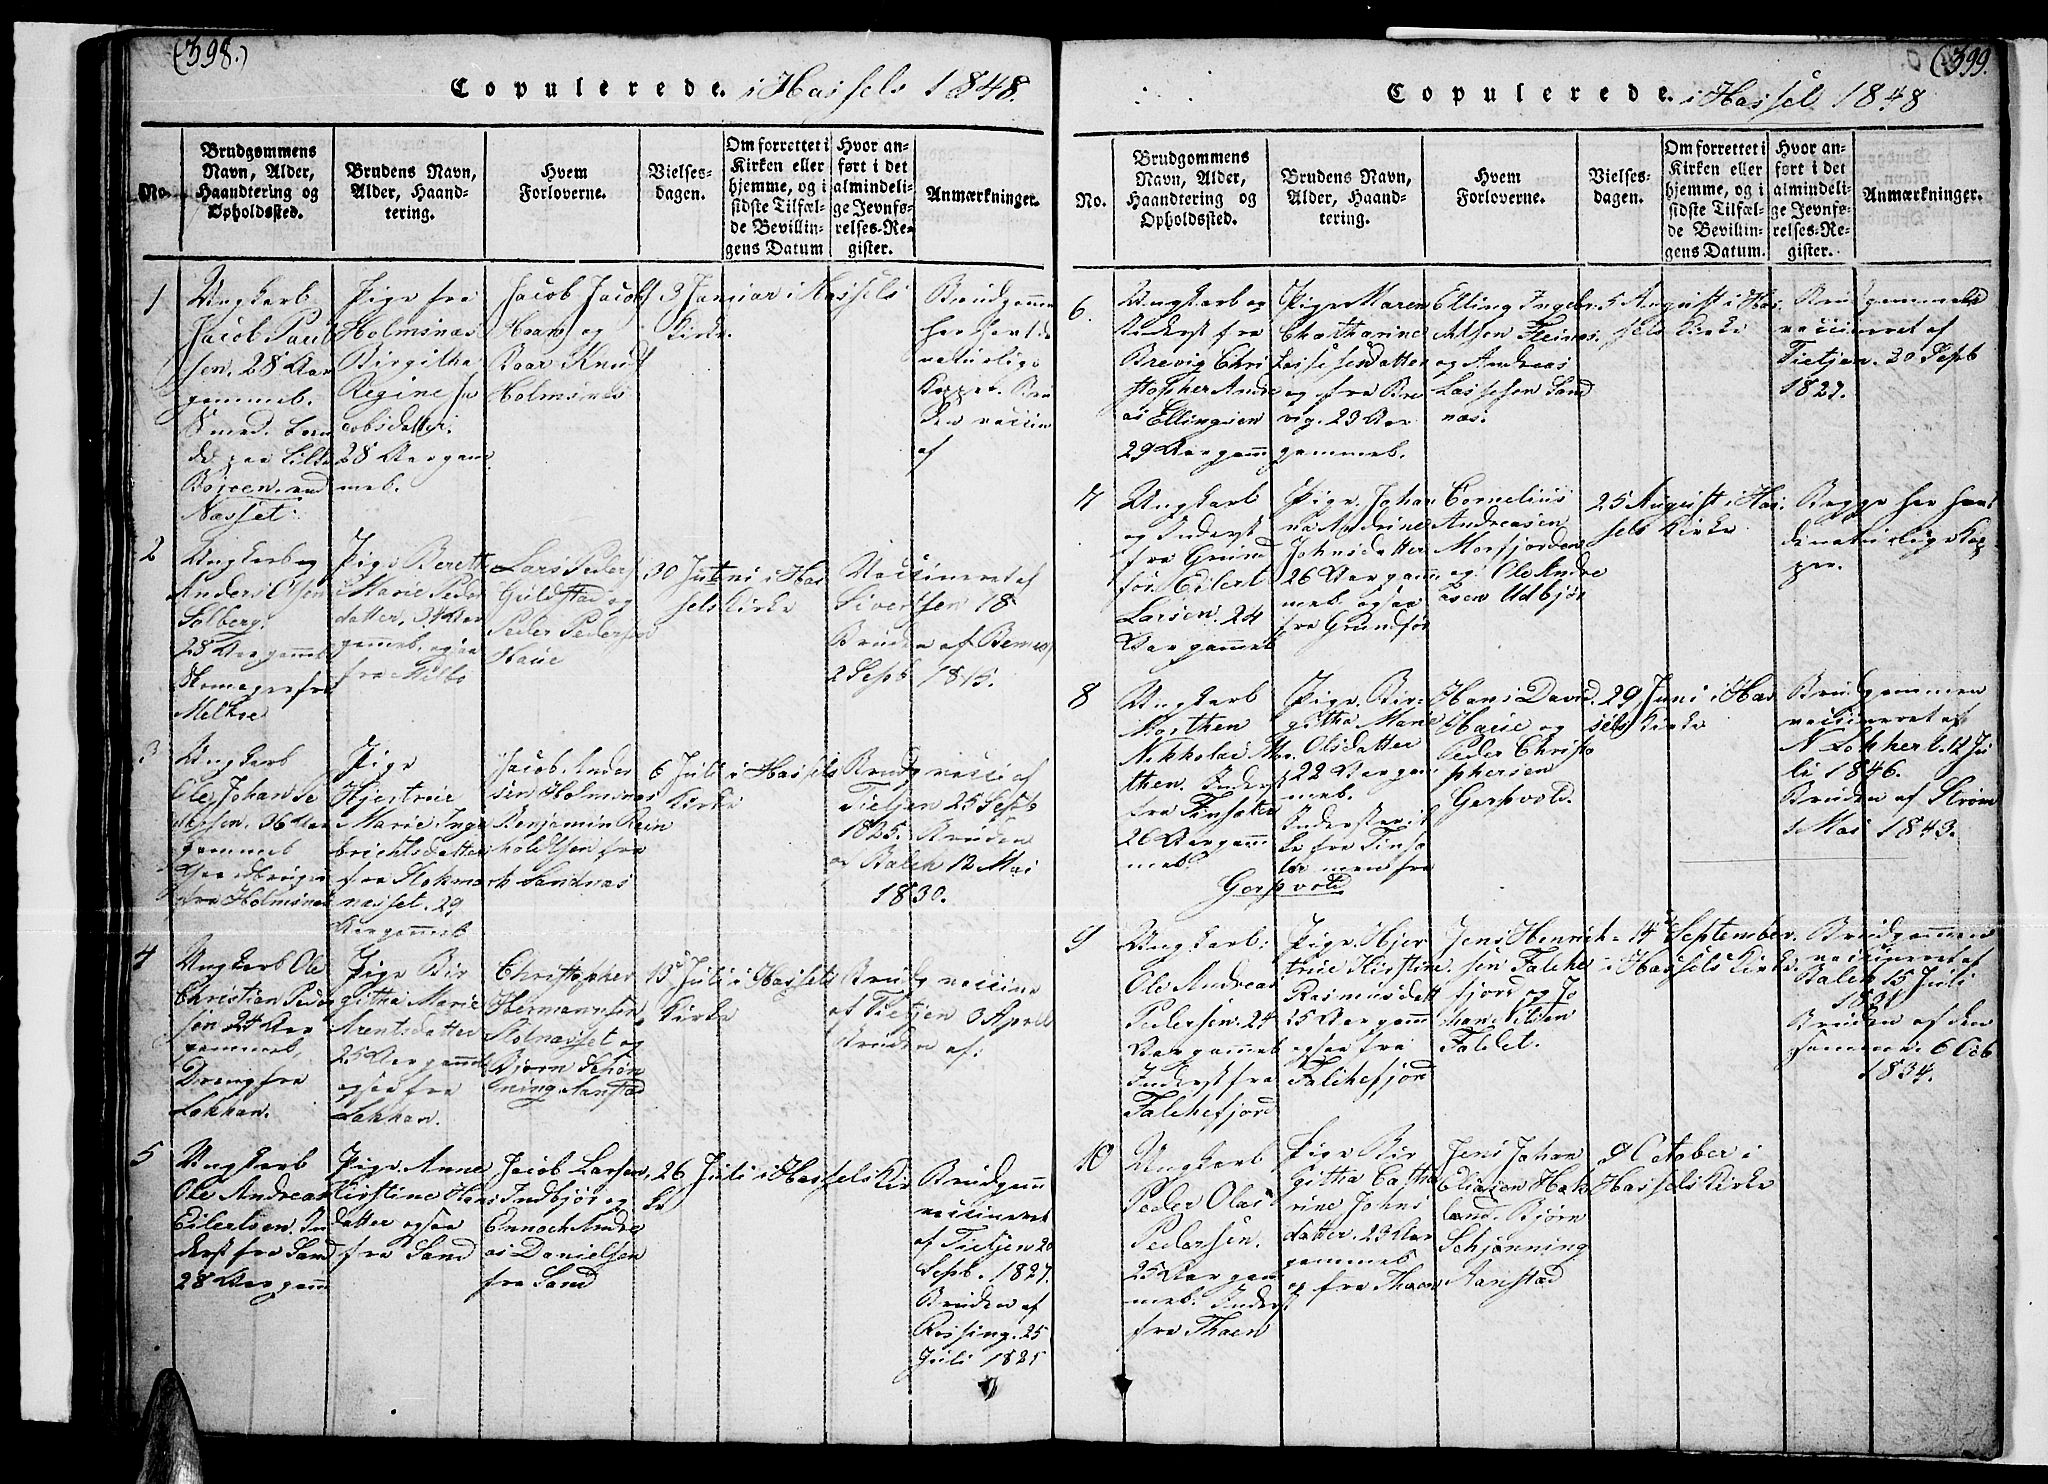 (398.)
Copulerede. i Hassels 1848.
No.
Brudgommens Navn, Alder, Haandtering og Opholdssted.
Brudens Navn, Alder, Haandtering.
Hvem Forloverne.
Vielsesdagen.
Om forrettet i Kirken eller hjemme, og i sidste Tilfælde Bevillingens Datum
Hvor anført i det almindelige Jevnførelses-Register.
Anmærkninger.
1
Ungkarl
Jacob Paul
sen. 28 Aar
gammel.
paa Lille
Nasset.
Pige fra
Holmsnæs
Birgitha
Regine Ja
cobsdatter.
28 Aar gam
mel.
Jacob Jacobs
Haam og
Baar Knud
Holmsnæs
3 Januar i Hassels
Kirke.
Brudgommen
har havt de
naturlige
Kopper. Bru
den vaccin
af
2
Ungkarl og
Anders Olsen
Solberg.
28 Aar gammel
fra
Melboe
Pige Bereth
Marie Peder
datter, 34 Aar
gammel, ogsaa
fra Melbo
Lars Peders
Guldstad og
Peder Pedersen
Haue
30 Juni i Has
sels Kirke
Vaccineret af
Sivertsen 18
Bruden af
2 Sept 1815.
3
Ungkarl
Ole Johan
36 Aar
gammel
fra Holmsnæs
Pige
Hjertrue
Marie Inge
brichtsdatter
fra Stokmark
næsset. 29
Aar gammel
Jacob Ander
sen Holmsnæs
Benjamin Rein
holdtsen fra
Sandnæs
6 Juli i Hassels
Kirke
Brudg vacci af
Tietjen 25 Sept
1825. Bruden
Balch 12 Mai
1830.
4
Ungkarl Ole
Christian Peder
sen 24 Aar
gammel,
Dreng fra
Løkhan.
Pige Bir
githa Marie
Arentsdatter
25 Aar gammel
ogsaa fra
Løkhan.
Christopher
Hermannsen
og
Bjørn Schøn
ning Aanstad
13de Juli i Hassels
Kirke
Brudg vaccine
af Tietjen 3 April
Bruden af:
5
Ungkarl
Ole Andreas
Eilertsen. In
derst fra Sand
28 Aar gamm
Pige Anne
Kirstine Hans
datter ogsaa
fra Sand
Jacob Larsen
Indbjør og
Ennoch Andre
as Danielsen
fra Sand
26 Juli i Hassels Kir
ke
Brudgomm
vaccineret
af Tietjen 20
Sept. 1827.
Bruden af
Rossing. 25
Juli 1825
(399.
Copulerede. i Hassel 1848
No.
Brudgommens Navn, Alder, Haandtering og Opholdssted.
Brudens Navn, Alder, Haandtering.
Hvem Forloverne.
Vielsesdagen.
Om forrettet i Kirken eller hjemme, og i sidste Tilfælde Bevillingens Datum.
Hvor anført i det almindelige Jevnførelses-Register.
Anmærkninger.
6.
Ungkarl og
Inderst fra
Brevig Chri
stopher Andre
as Ellingsen
29 Aar gamm
Pige Maren
Chatharine
Lassesendatter
og fra Bre
vig. 23 Aar
gammel.
Elling Ingebr
Alsen Fleinæs.
og Andreas
Lassesen Sand
næs.
5 August i Has
sels Kirke
Brudgommen
vaccineret af
Tietjen. 20 Sept
1822.
7
Ungkarl
og Inderst
fra Grund
før Eilert
Larsen. 24
Aar gammel
Pige Johan
na Andrine
Johnsdatter
26 Aar gam
mel ogsaa
fra Grundfør
Cornelius
Andreasen
Morfjorden
og Ole Andre
asen Udbjør
25 August i Has
sels Kirke
Begge har havt
de naturlige Kop
per.
8
Ungkarl
Morthen
Nikkolai Mo
then. Inderst
fra Finsæter
26 Aar gamm
mel.
Pige Bir
githa Marie
Olsdatter
22 Aar gam
mel.
Inderst
fra Finsæ
ter men fra
Gerpvold
Hans David.
Harie og
Peder Christo
phersen
Gerpvold.
29 Juni i Has
sels Kirke
Brudgommen
vaccineret af
N Lokhert. 12 Ju
li 1846.
Bruden af Strøm
1 Mai 1843.
9
Ungkarl:
Ole Andreas
Pedersen. 24
Aar gammel
Inderst fra
Falchefjord
Pige Hjer
true Kirstine.
Rasmusdatt
25 Aar gamm
ogsaa fra
Falchefjord
Jens Henrich=
sen Falche
fjord og Jo
han Nilsen
Faldet.
14 September
i Hassels Kirke
Brudgommen
vaccineret af
Balch 15 Juli
Bruden af den
samme. 6 Octb
1834.
10
Ungkarl
Peder Olai
Pedersen.
25 Aar gam
mel. Inderst
fra Thaen
Pige Bir
githa Catha
rine Johns
datter. 23 Aar
gammel
og fra Thaen
Jens Johan
Eliasen Hok
land. Bjørn
Schjønning
Aanstad
October i
Hassels Kirke